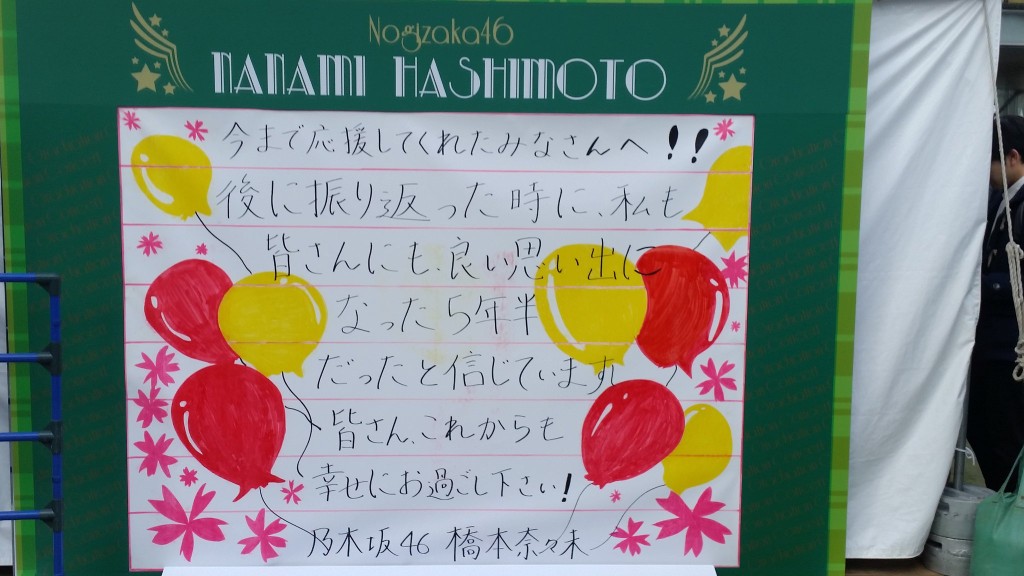 Nogizaka46
NANAMI HASHIMOTO
今まで応援してくれたみなさんへ!!
後に振り返った時に、私も
皆さんにも、良い思い出に
なった5年半
だったと信じています
皆さん、これからも
幸せにお過ごし下さい!
乃木坂46 橋本奈々未